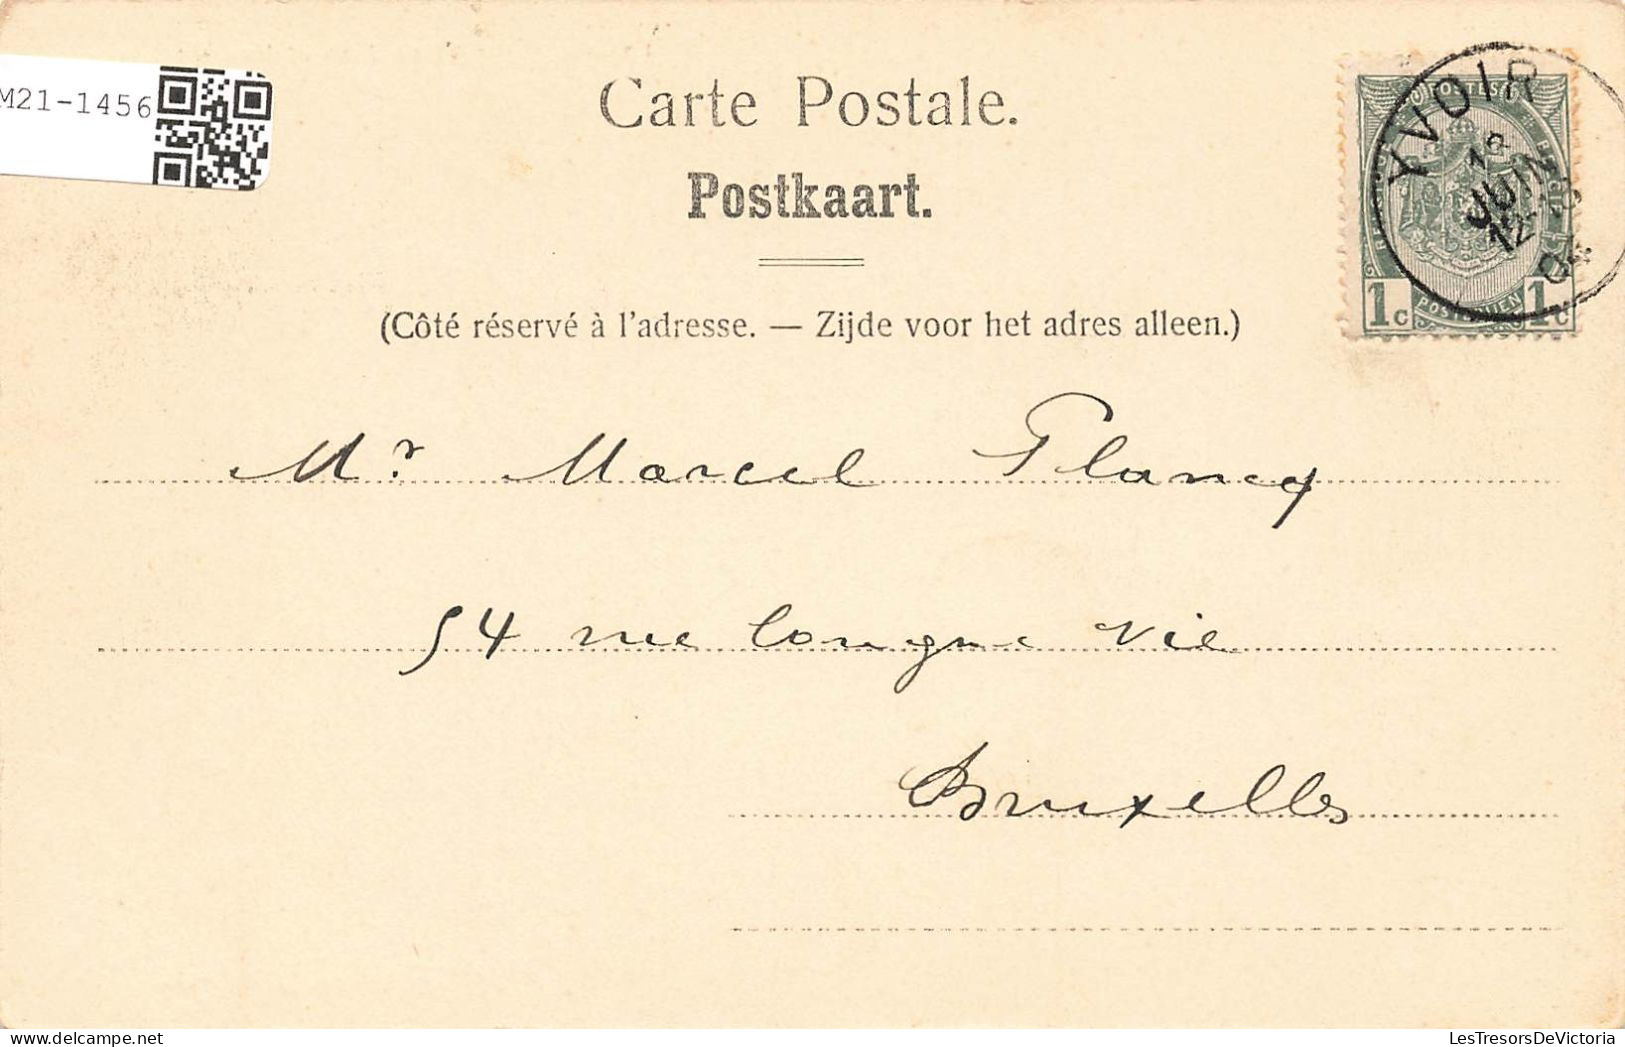 M21-1456
Carte Postale.
Postkaart.
(Côté réservé à l'adresse. — Zijde voor het adres alleen.)
YVOIR
JUIN
04
POSTERIJEN
1c 1c
Mr Marcel Plancq
54 rue longue vie
Bruxelles
LesTresorsDeVictoria